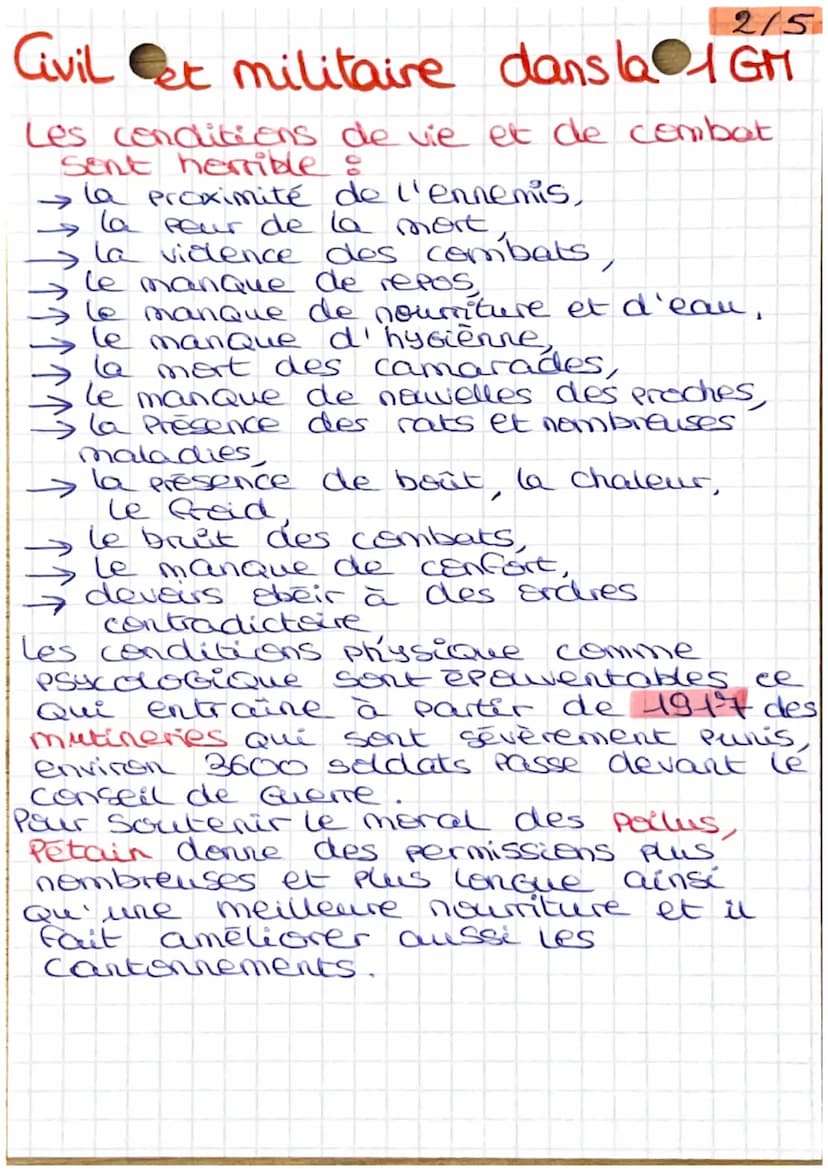 2/5
Civil et militaire dans la 1 GM
Les conditions de vie et de combat
sont herrible :
→ la proximité de l'ennemis,
→ la peur de la mort,
→ la violence des combats,
→ le manque de repos,
→ le manque de nourriture et d'eau,
→ le manque d'hygiènne,
→ la mort des camarades,
→ le manque de nouvelles des proches,
→ la présence des rats et nombreuses
maladies,
→ la présence de boût, la chaleur,
le froid,
→ le bruît des combats,
→ le manque de confort,
→ devoirs obéir à des ordres
contradictoire
Les conditions physique comme
psycologique sont épouventables ce
qui entraîne à partir de 1917 des
mutineries qui sont sévèrement punis,
environ 3600 soldats passe devant le
conseil de guerre.
Pour soutenir le moral des poilus,
Pétain donne des permissions plus
nombreuses et plus longue ainsi
qu'une meilleure nourriture et il
fait améliorer aussi les
cantonnements.